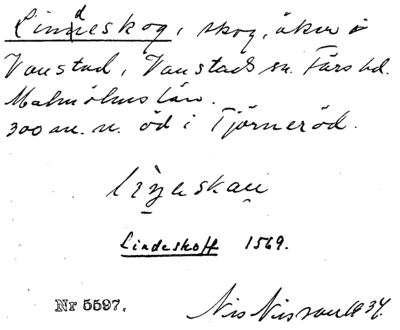 Linndeskog, skog, åker i
Vanstad, Vanstads sn. Färs hd.
Malmöhus län.
300 m. n. öd i Tjörneröd.
Lindeskoff 1569.
Nr 5597.
Nils Nilsson 1934.